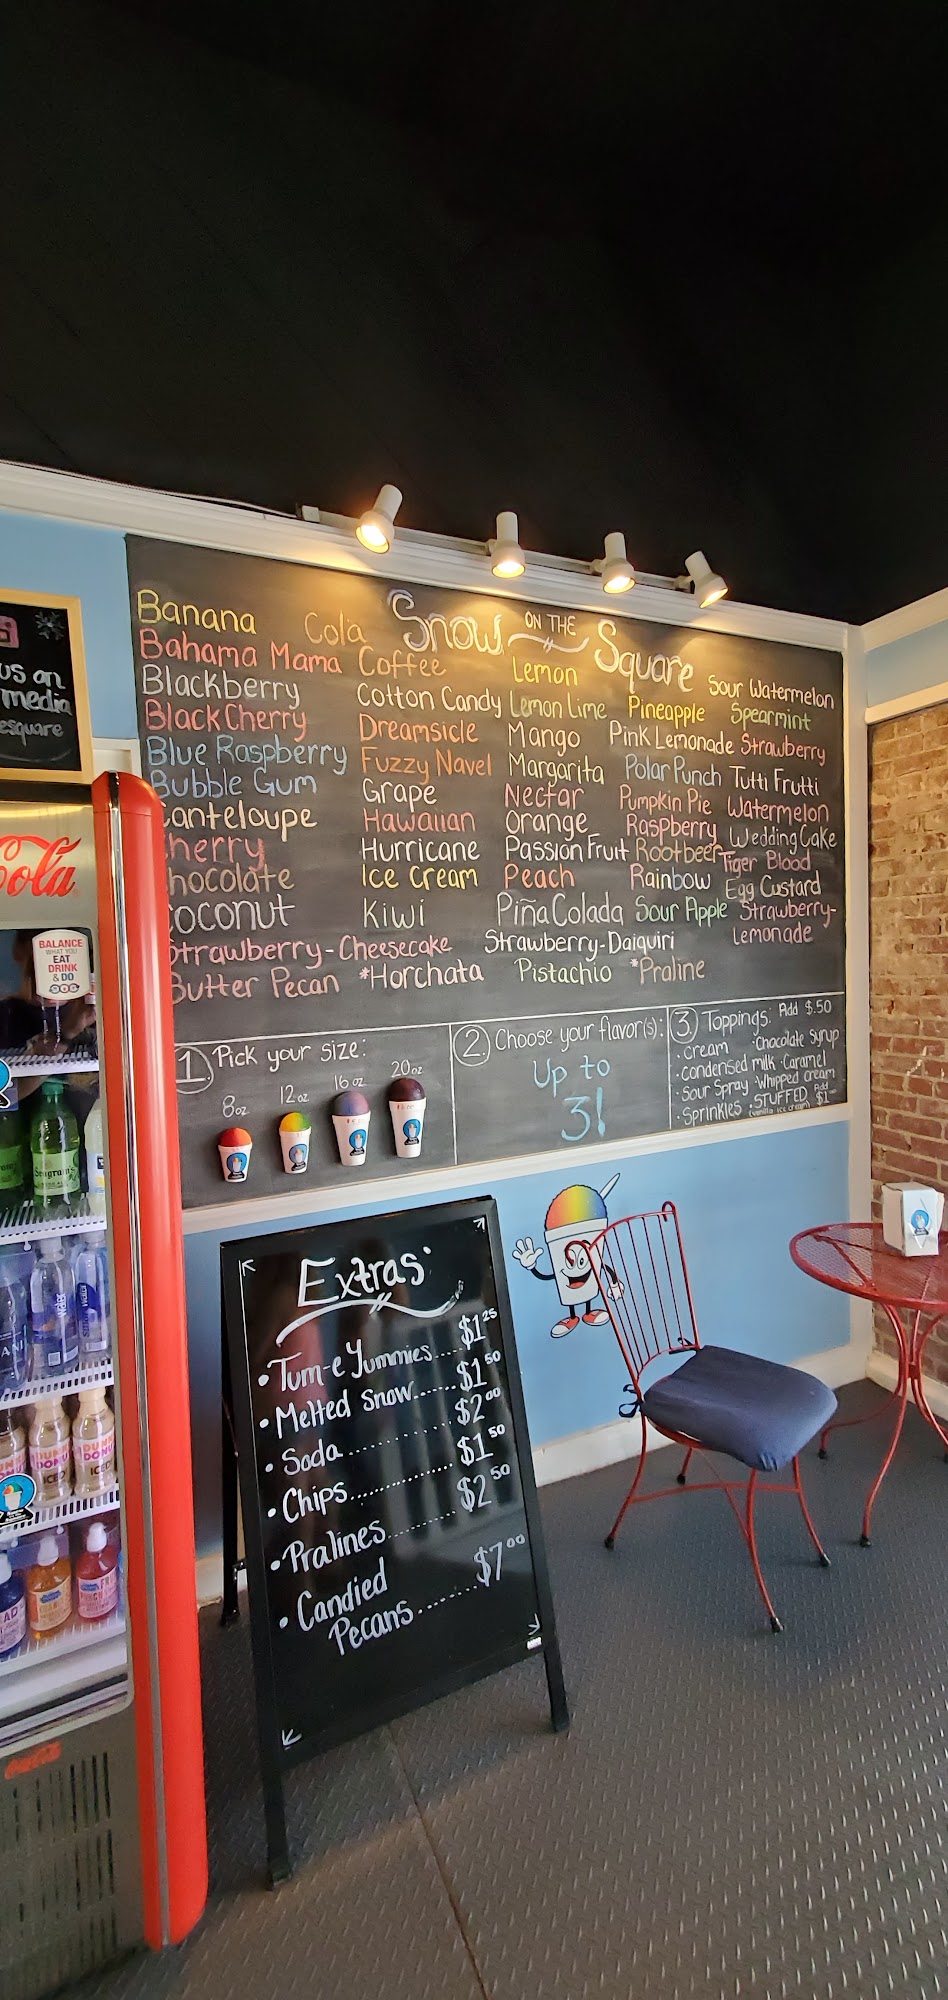 us on
media
esquare
Snow ON THE Square
Banana
Bahama Mama
Blackberry
Black Cherry
Blue Raspberry
Bubble Gum
Canteloupe
Cherry
Chocolate
Coconut
Strawberry-Cheesecake
Butter Pecan
Cola
Coffee
Cotton Candy
Dreamsicle
Fuzzy Navel
Grape
Hawaiian
Hurricane
Ice Cream
Kiwi
*Horchata
Lemon
Lemon Lime
Mango
Margarita
Nectar
Orange
Passion Fruit
Peach
Piña Colada
Strawberry-Daiquiri
Pistachio
Pineapple
Pink Lemonade
Polar Punch
Pumpkin Pie
Raspberry
Rootbeer
Rainbow
Sour Apple
*Praline
Sour Watermelon
Spearmint
Strawberry
Tutti Frutti
Watermelon
Wedding Cake
Tiger Blood
Egg Custard
Strawberry-
Lemonade
1. Pick your size:
8oz
12oz
16oz
20oz
2. Choose your flavor(s):
Up to
3!
3. Toppings: Add $.50
· Cream · Chocolate Syrup
· Condensed milk · Caramel
· Sour Spray · Whipped cream
· Sprinkles · STUFFED Add $1
(vanilla ice cream)
Cola
BALANCE
WHAT YOU
EAT
DRINK
& DO
Seagram's
DUNKIN
DONUTS
ICED
Extras:
• Tum-e Yummies.....$1.25
• Melted Snow......$1.50
• Soda............$2.00
• Chips............$1.50
• Pralines........$2.50
• Candied
Pecans......$7.00